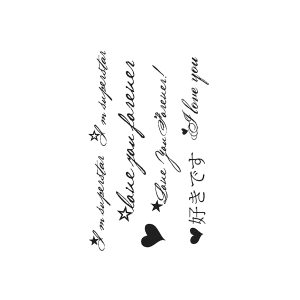 I'm superstar
I'm superstar
love you forever
Love You Forever!
好きです
I love you